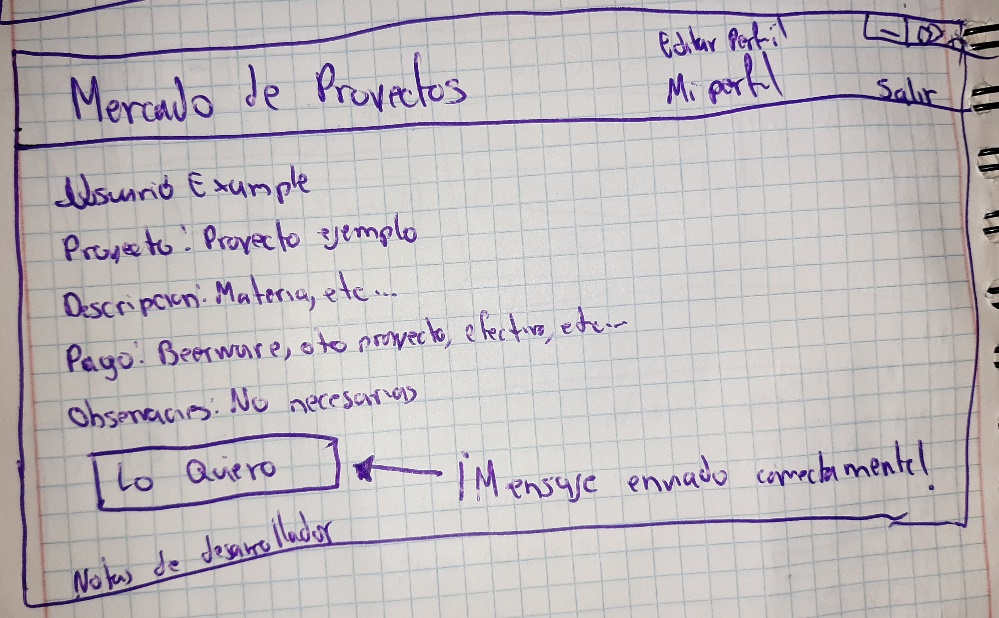 Editar Perfil
Mercado de Proyectos
Mi perfil
Salir
Usuario Example
Proyecto: Proyecto ejemplo
Descripcion: Materia, etc...
Pago: Beerware, oto proyecto, efectivo, etc...
No necesarias
Lo Quiero
¡Mensaje enviado correctamente!
Notas de desarrollador